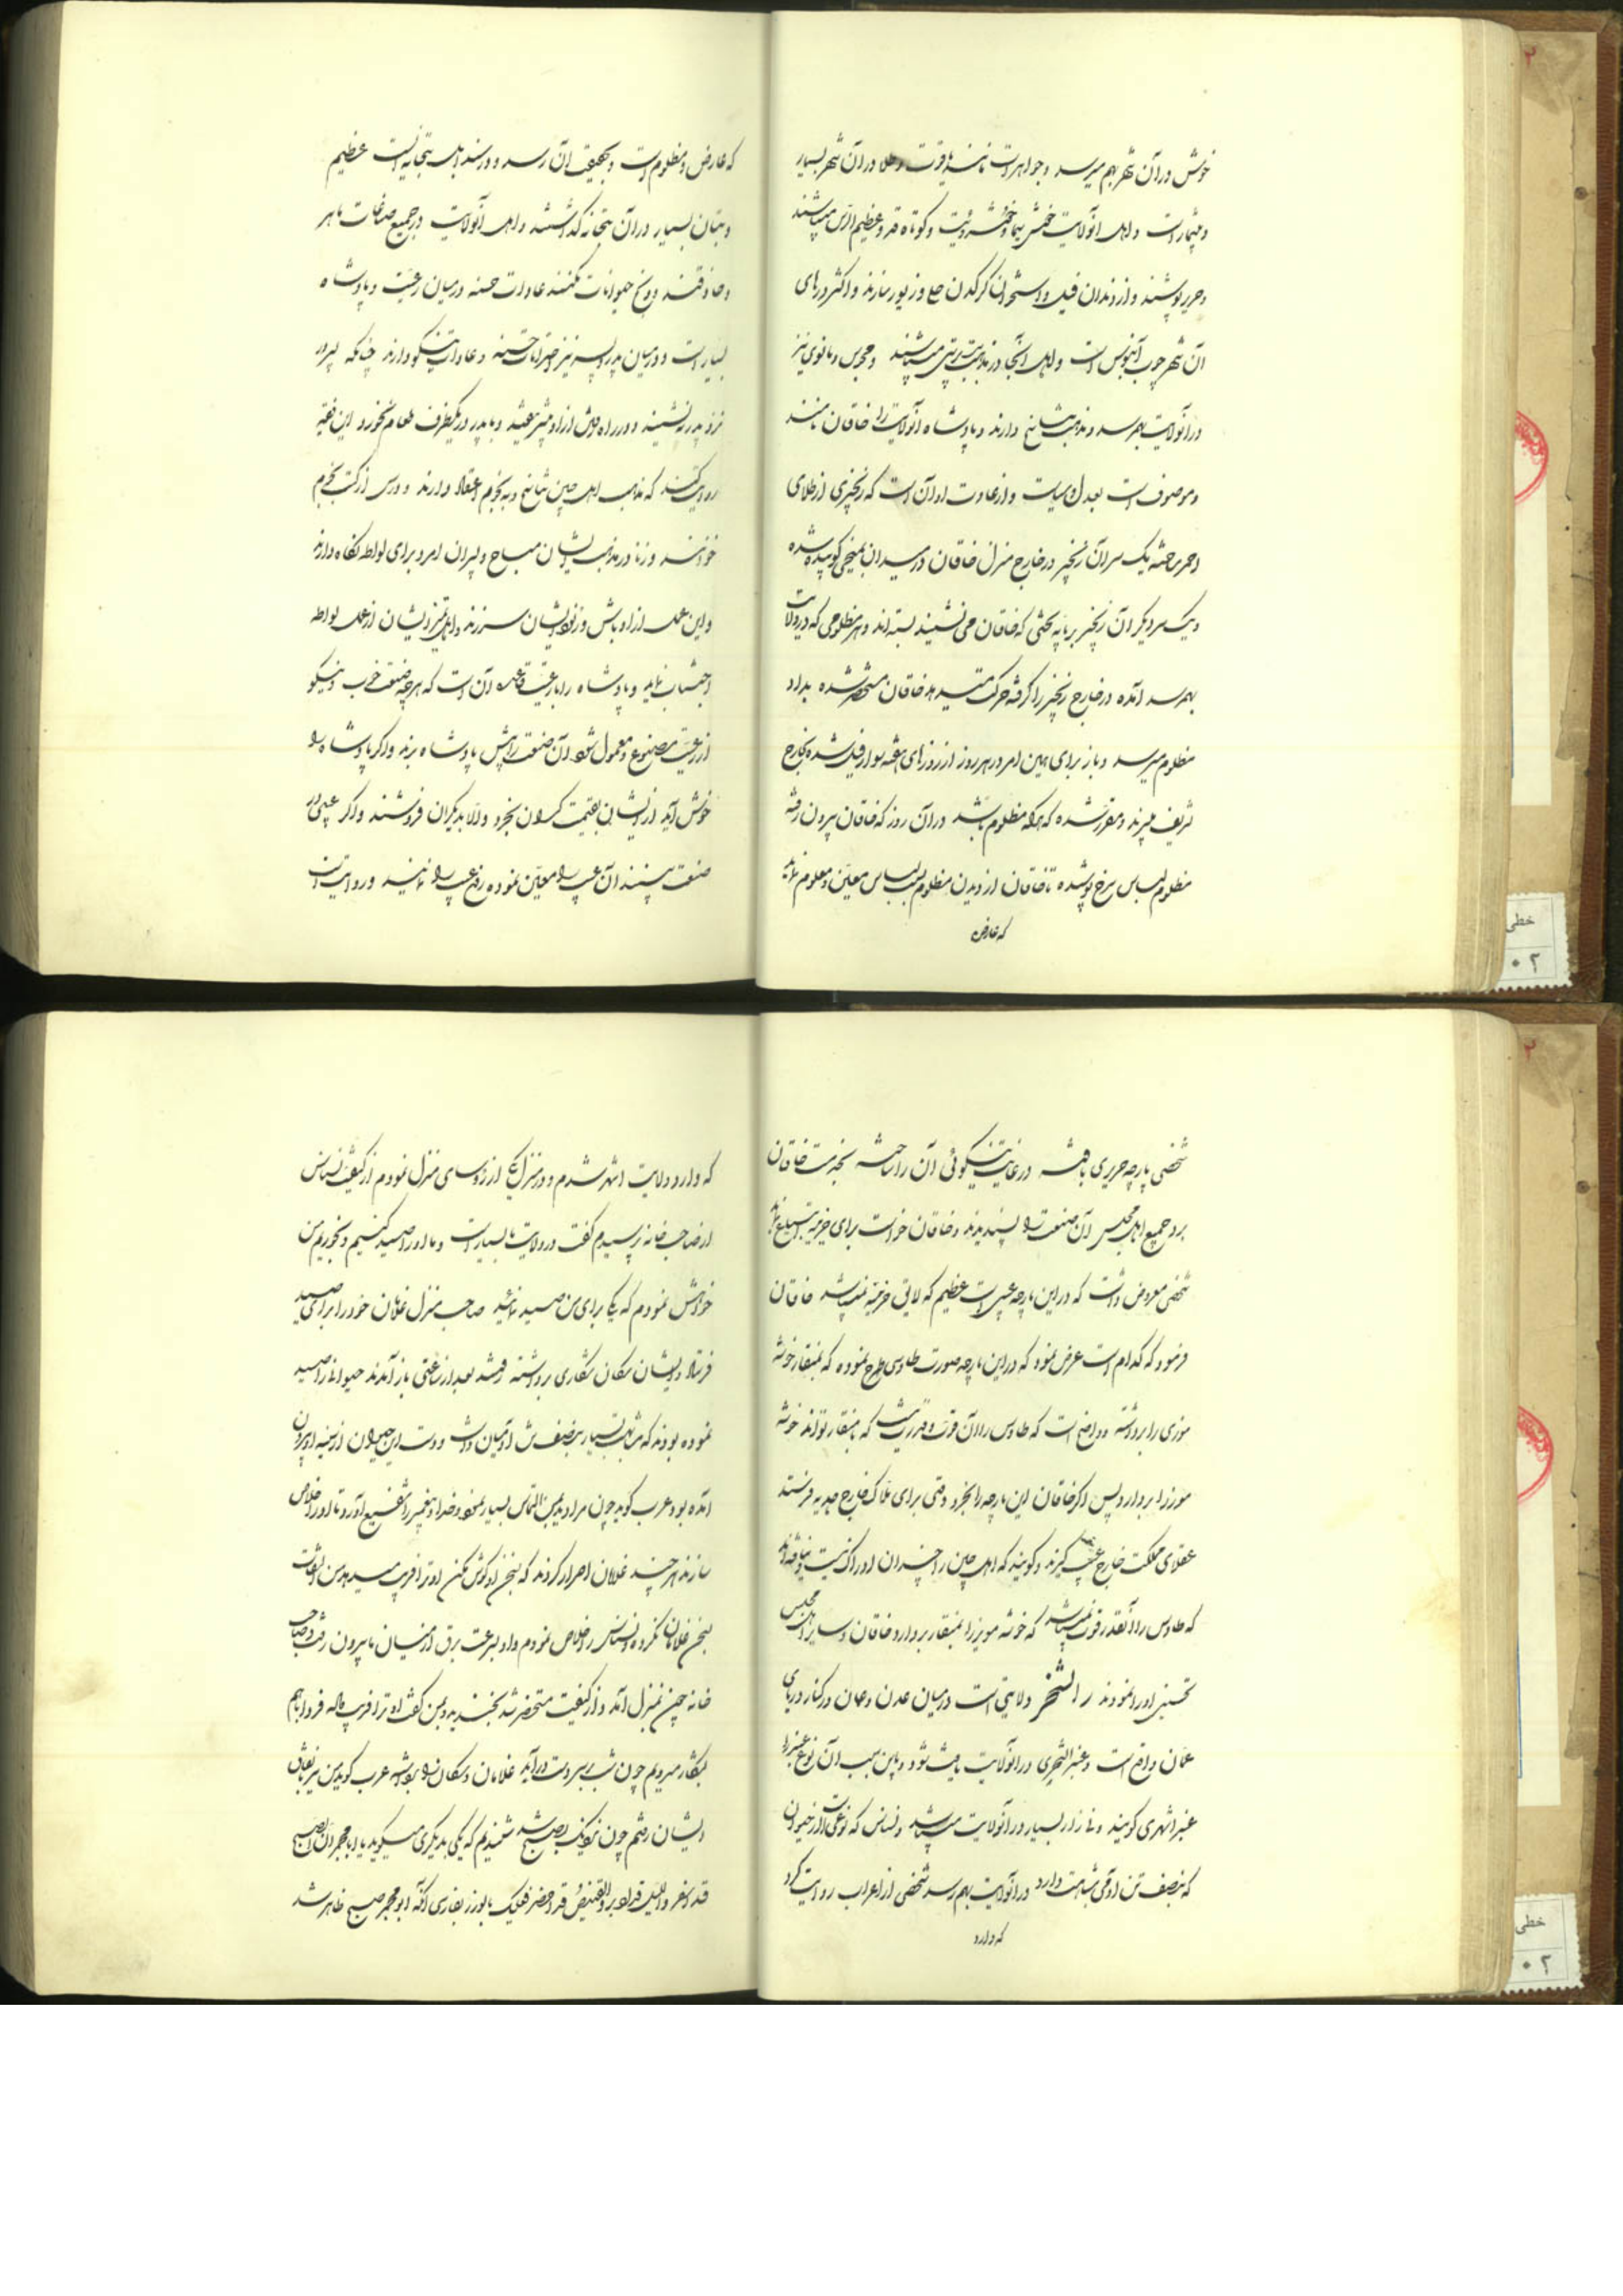 خوش در آن شهر بهم میرسد و جواهرات مانند یاقوت و طلا در آن شهر بسیار
و بیشمار است و اهل آنولایت خوش سیما و خوش رویت و کوتاه قد و عظیم الراس میباشند
و حریر پوشند و از دندان فیل و استخوان کرکدن حلی و زیور سازند و اکثر درهای
آن شهر چوب آبنوس است و اهل آنجا در مذهب بت پرستی میباشند و مجوس و مانوی نیز
در آنولایت بهمرسد و مذهب تناسخ دارند و پادشاه آنولایت را خاقان نامند
و موصوف است بعدل و سیاست و از عادت او آن است که زنجیری از طلای
احمر ساخته یک سر آن زنجیر در خارج منزل خاقان در میدان بمیخی کوبیده شده
و یک سر دیگر آن زنجیر بر پایه تختی که خاقان می نشیند بسته اند و هر مظلومی که در ولایت
بهمرسد آمده در خارج زنجیر را گرفته حرکت میدهد خاقان مستحضر شده بداد
مظلوم میرسد و باز برای همین امر در هر روز از روزهای هفته سوار فیل شده بخارج
تشریف میبرند و مقرر شده که هرکه مظلوم باشد در آن روز که خاقان بیرون رفته
مظلوم لباس سرخ پوشیده تا خاقان از دیدن مظلوم بلباس معین و معلوم نماید
که عارض
که عارض و مظلوم است و بحقیقت آن رسد و در سندابل بتخانه ایست عظیم
و بتان بسیار در آن بتخانه گذاشته و اهل آنولایت در جمیع صناعات ماهر
و حاذقند و ذبح حیوانات نکنند عادات حسنه در میان رعیت و پادشاه
بسیار است و در میان پدر و پسر نیز احترامات حسنه و عادات نیکو دارند چنانکه پسر در
نزد پدر ننشیند و در راه رفتن از او پیش نیفتد و با پدر در یکظرف طعام نخورد ابن فقیه
روایت کند که مذهب اهل چین تناسخ و به نجوم اعتقاد دارند و درس از کتب نجوم
خوانند و زنا در مذهب ایشان مباح و پسران امرد برای لواطه نگاه دارند
و این عمل از اوباش و زنود ایشان سر زند و اهل تمیز ایشان از عمل لواطه
اجتناب نماید و پادشاه را با رعیت قاعده آن است که هر چه صنعت خوب و نیکو
از رعیت مصنوع و معمول شود آن صنعت را پیش پادشاه برند و اگر پادشاه را
خوش آید از ایشان بقیمت گران بخرد و الا بدیگران فروشند و اگر عیبی در
صنعت بینند آن عیب را معین نموده رفع عیب را نمایند و روایت است
شخصی پارچه حریری بافته در غایت نیکوئی آن را ساخته بخدمت خاقان
برد جمیع اهل مجلس آن صنعت را پسندیدند و خاقان خواست برای خزینه ابتیاع نماید
شخصی معروض داشت که در این پارچه عیبی است عظیم که لایق خزینه نمیباشد خاقان
فرمود که کدام است عرض نمود که در این پارچه صورت طاوسی طرح نموده که بمنقار خوشه
موزی را برداشته و واضح است که طاوس را آن قوت و قدرت نیست که با منقار تواند خوشه
موز را بردارد پس اگر خاقان این پارچه را بخرد وقتی برای ملاک خارج هدیه فرستد
عقلای مملکت خارج عیب گیرند و گویند که اهل چین را چندان ادراک نیست و نیافته اند
که طاوس را آنقدر قوت نمیباشد که خوشه موز را بمنقار بردارد خاقان و سایر اهل مجلس
تحسین او را نمودند الشحر ولایتی است در میان عدن و عمان در کنار دریای
عمان واقع است و عنبر الشحری در آنولایت یافت شود و باین سبب آن نوع عنبر را
عنبر اشهری گویند و نی زار بسیار در آنولایت میباشد و نسناس که نوعی است از حیوان
که بنصف تن آدمی شباهت دارد در آنولایت بهم رسد شخصی از اعراب روایت کرد
که وارد
که وارد ولایت اشهر شدم و در منزل یکی از رؤسای منزل نمودم از کیفیت نسناس
از صاحب خانه پرسیدم گفت در ولایت ما بسیار است و ما او را صید کنیم و بخوریم من
خواهش نمودم که یکی برای من صید نمائید صاحب منزل غلامان خود را برای صید
فرستاد ایشان سگان شکاری برداشته رفتند بعد از ساعتی باز آمدند حیوانی را صید
نموده بودند که شباهت بسیار بنصف تن آدمیان داشت و دست این حیوان از سینه او بیرون
آمده بود عرب گوید چون مرا دید بمن التماس بسیار نمود و خدا و پیغمبر را شفیع آورد تا او را خلاص
سازند هر چند غلامان اصرار کردند که بسخن او گوش مکن او ترا فریب میدهد من التفات
بسخن غلامان نکرده نسناس را خلاص نمودم و او بسرعت برق از میان ما بیرون رفت و صاحب
خانه چون بمنزل آمد و از کیفیت مستحضر شد بخندید و بمن گفت او ترا فریب داده فردا باهم
بشکار میرویم چون شب بسر دست درآید غلامان و سگان را برداشته عرب گوید من نیز باتفاق
ایشان رفتم چون نزدیک بصبح شد شنیدم که یکی بدیگری میگوید یا ابا مجمر ان الصبح
قد اسفر و اللیل قد ادبر و القنیص قد حضر فعلیک بالوزر بفارسی آنکه ابو مجمر صبح ظاهر شد